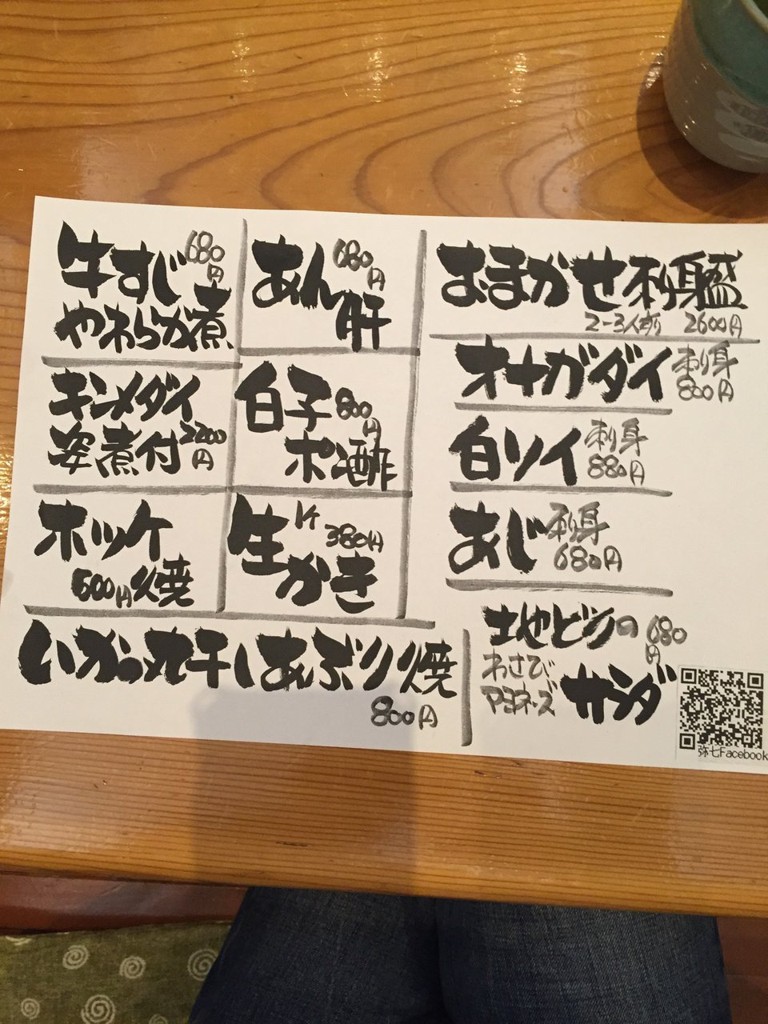 牛すじ 680円
やわらか煮
あん肝 680円
おまかせ刺身盛
2-3人前 2600円
キンメダイ
姿煮付 2200円
白子 800円
ポン酢
オナガダイ 刺身 800円
白ソイ 刺身 880円
ホッケ
600円 焼
生かき 1ケ 380円
あじ 刺身 680円
いか丸干しあぶり焼
800円
地どりの 680円
わさび
マヨネーズ サラダ
弥七Facebook